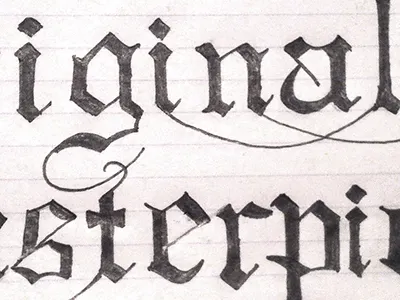 iginal
esterpie